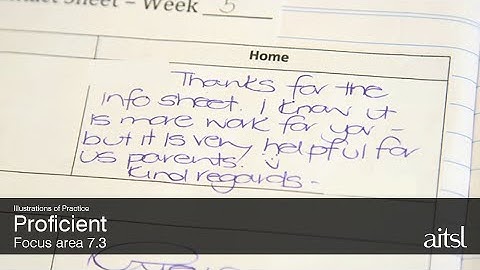 Sheet – Week 5
Home
Thanks for the
info sheet. I know it
is more work for you –
but it is very helpful for
us parents. :)
Kind regards –
Illustrations of Practice
Proficient
Focus area 7.3
aitsl